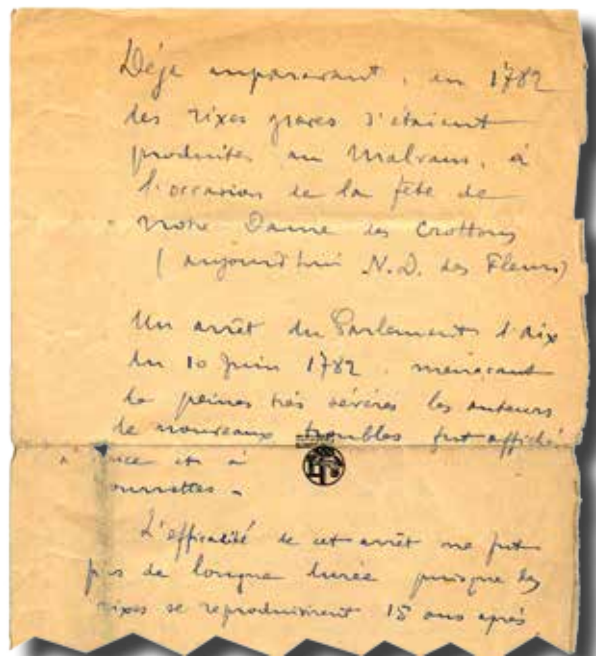 Déjà auparavant, en 1782
des rixes graves s'étaient
produites au Malvans, à
l'occasion de la fête de
Notre Dame des Crottons
(aujourd'hui N.D. des Fleurs)
Un arrêt du Parlement d'Aix
du 10 Juin 1782, menaçant
de peines très sévères les auteurs
de nouveaux troubles fut affiché
à et à
ourrettes.
L'efficacité de cet arrêt ne fut
pas de longue durée puisque les
rixes se reproduisirent 15 ans après